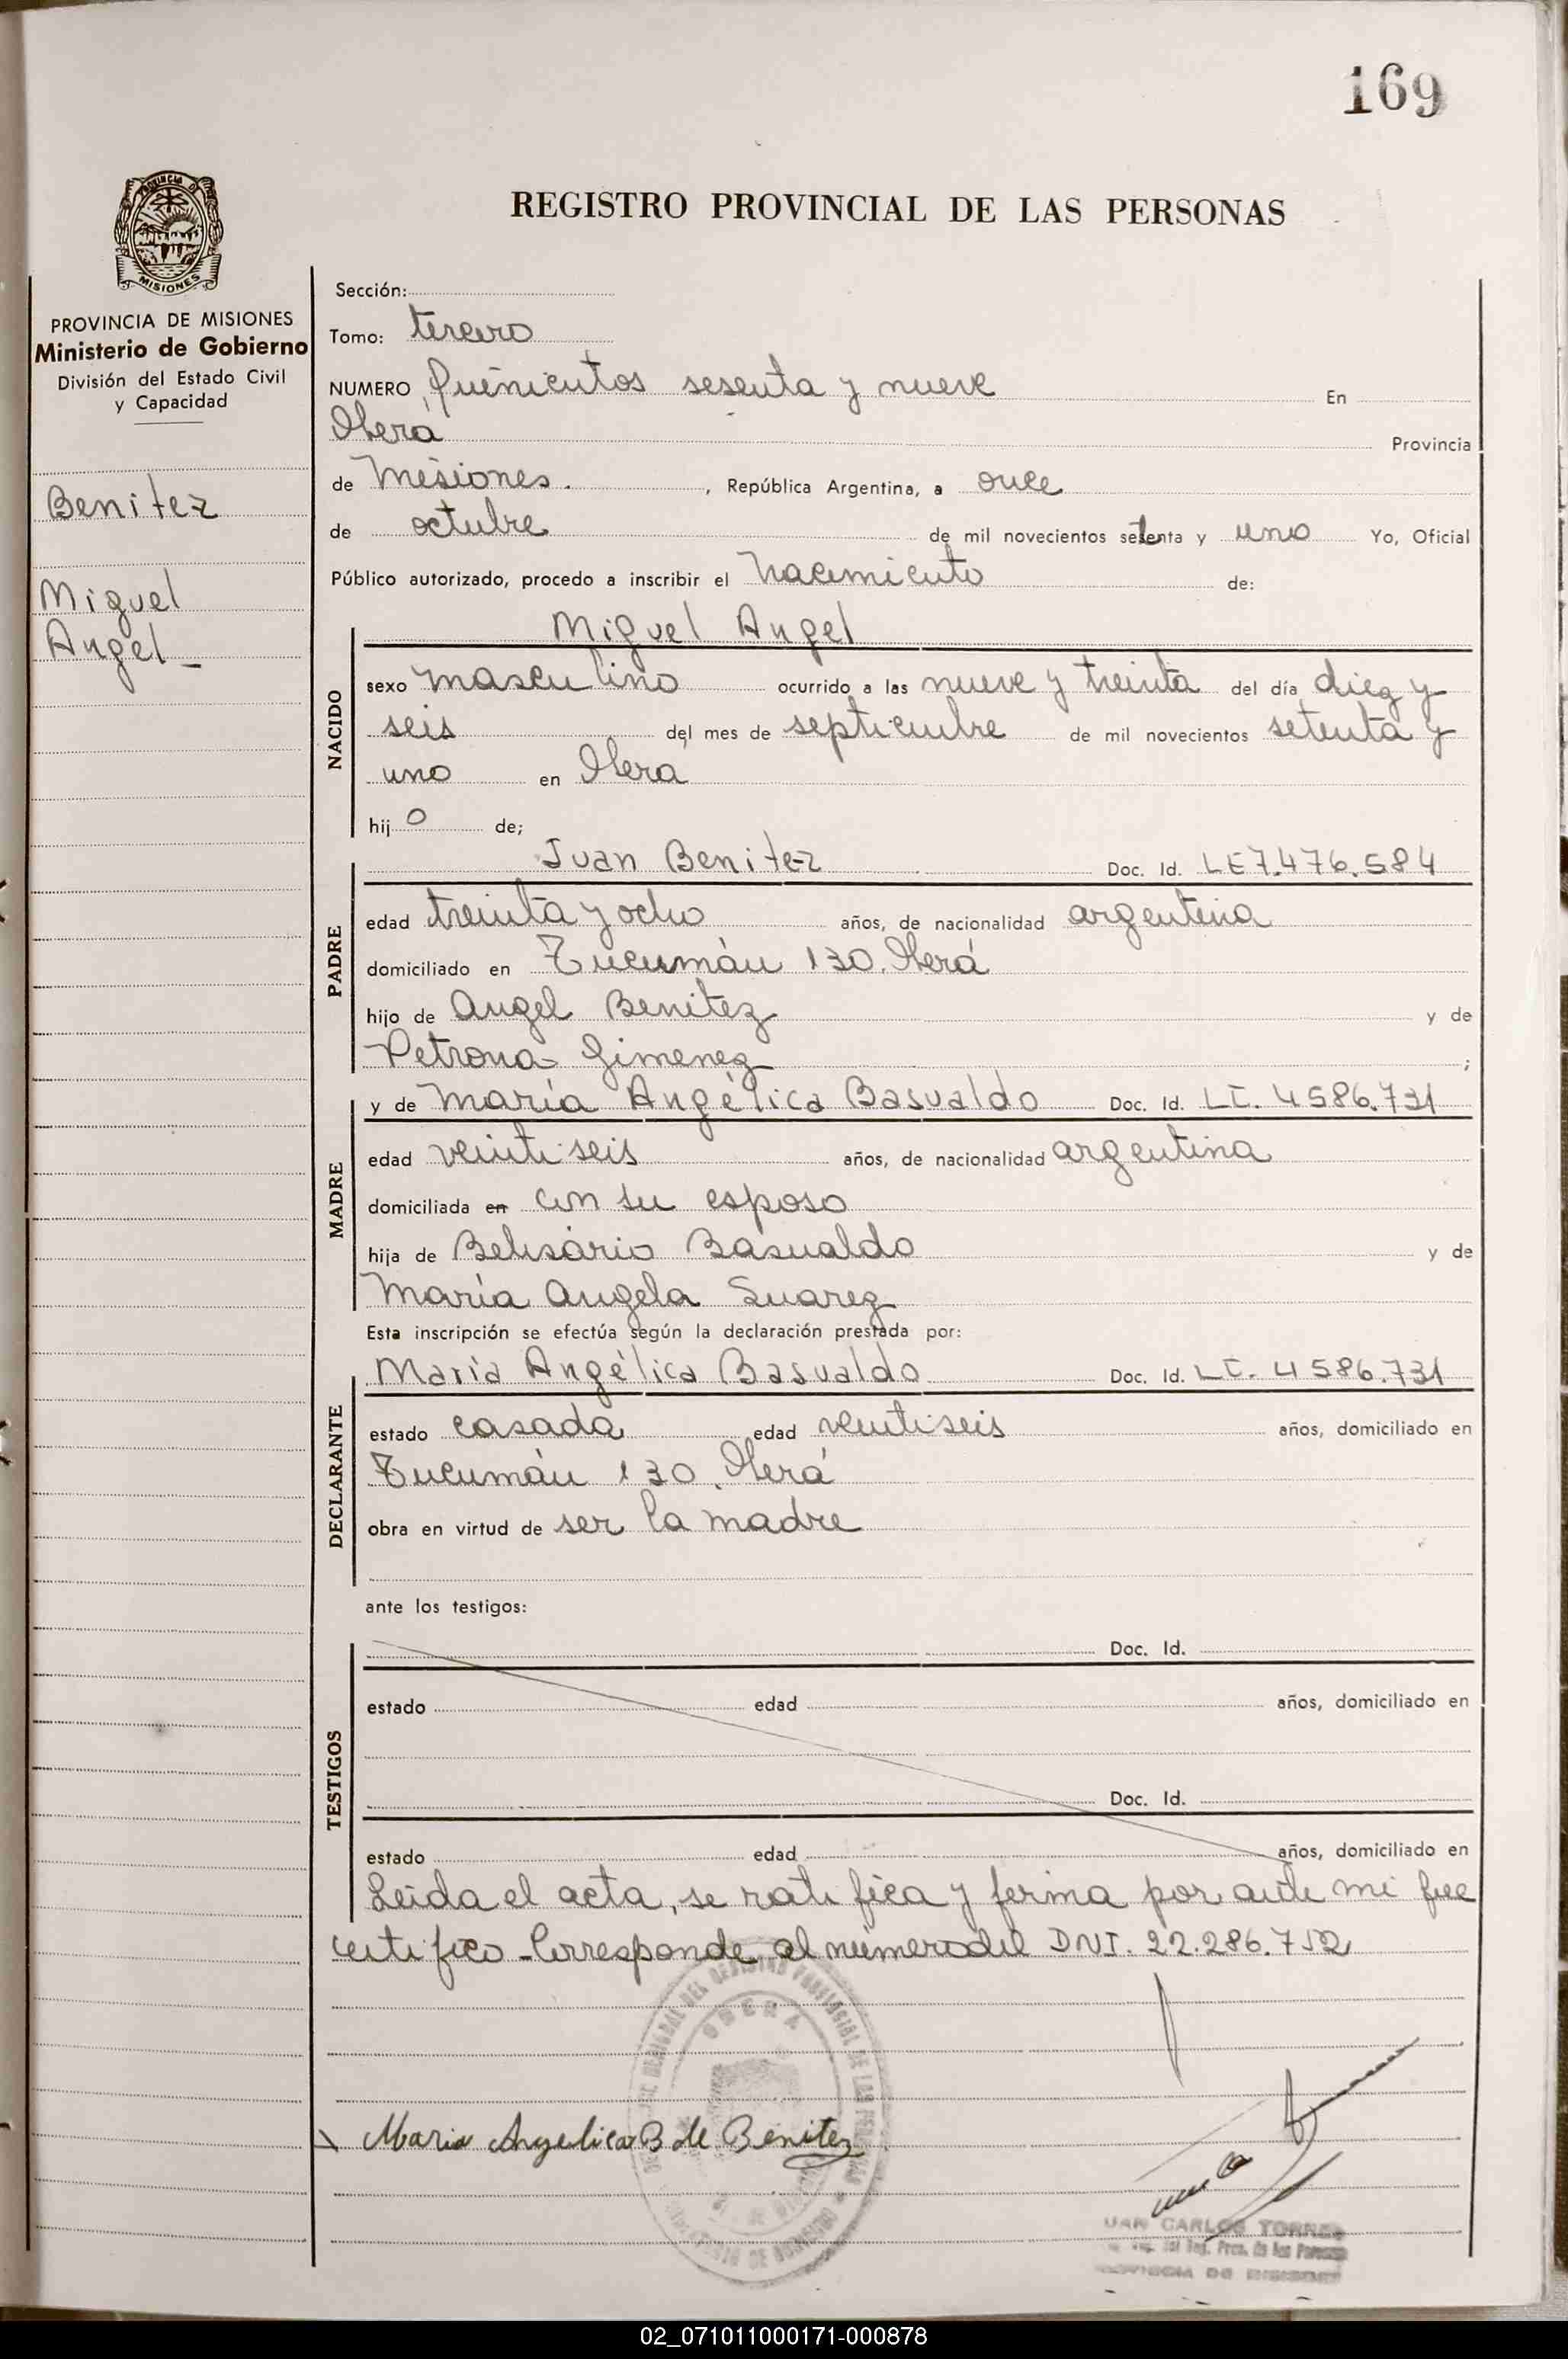 169
REGISTRO PROVINCIAL DE LAS PERSONAS
PROVINCIA DE
MISIONES
PROVINCIA DE MISIONES
Ministerio de Gobierno
División del Estado Civil
y Capacidad
Benitez
Miguel
Angel_
Sección:
Tomo: tercero
NUMERO Quinientos sesenta y nueve En
Oberá Provincia
de Misiones. , República Argentina, a once
de octubre de mil novecientos setenta y uno Yo, Oficial
Público autorizado, procedo a inscribir el nacimiento de:
Miguel Angel
NACIDO
sexo masculino ocurrido a las nueve y treinta del día diez y
seis del mes de septiembre de mil novecientos setenta y
uno en Obera
hij o de;
PADRE
Juan Benitez Doc. Id. LE7.476.584
edad treinta y ocho años, de nacionalidad argentina
domiciliado en Tucumán 130. Oberá
hijo de Angel Benitez y de
Petrona Gimenez ;
MADRE
y de María Angélica Basualdo Doc. Id. LC. 4586.731
edad veintiseis años, de nacionalidad argentina
domiciliada en con su esposo
hija de Belisario Basualdo y de
María Angela Suarez
Esta inscripción se efectúa según la declaración prestada por:
DECLARANTE
María Angélica Basualdo Doc. Id. LC. 4586.731
estado casada edad veintiseis años, domiciliado en
Tucumán 130. Oberá
obra en virtud de ser la madre
ante los testigos:
TESTIGOS
Doc. Id.
estado edad años, domiciliado en
Doc. Id.
estado edad años, domiciliado en
Leida el acta, se ratifica y firma por ante mi que
certifico _ Corresponde al número del DNI. 22.286.752
Maria Angelica B de Benitez
JUAN CARLOS TORRES
PROVINCIA DE MISIONES
02_071011000171-000878